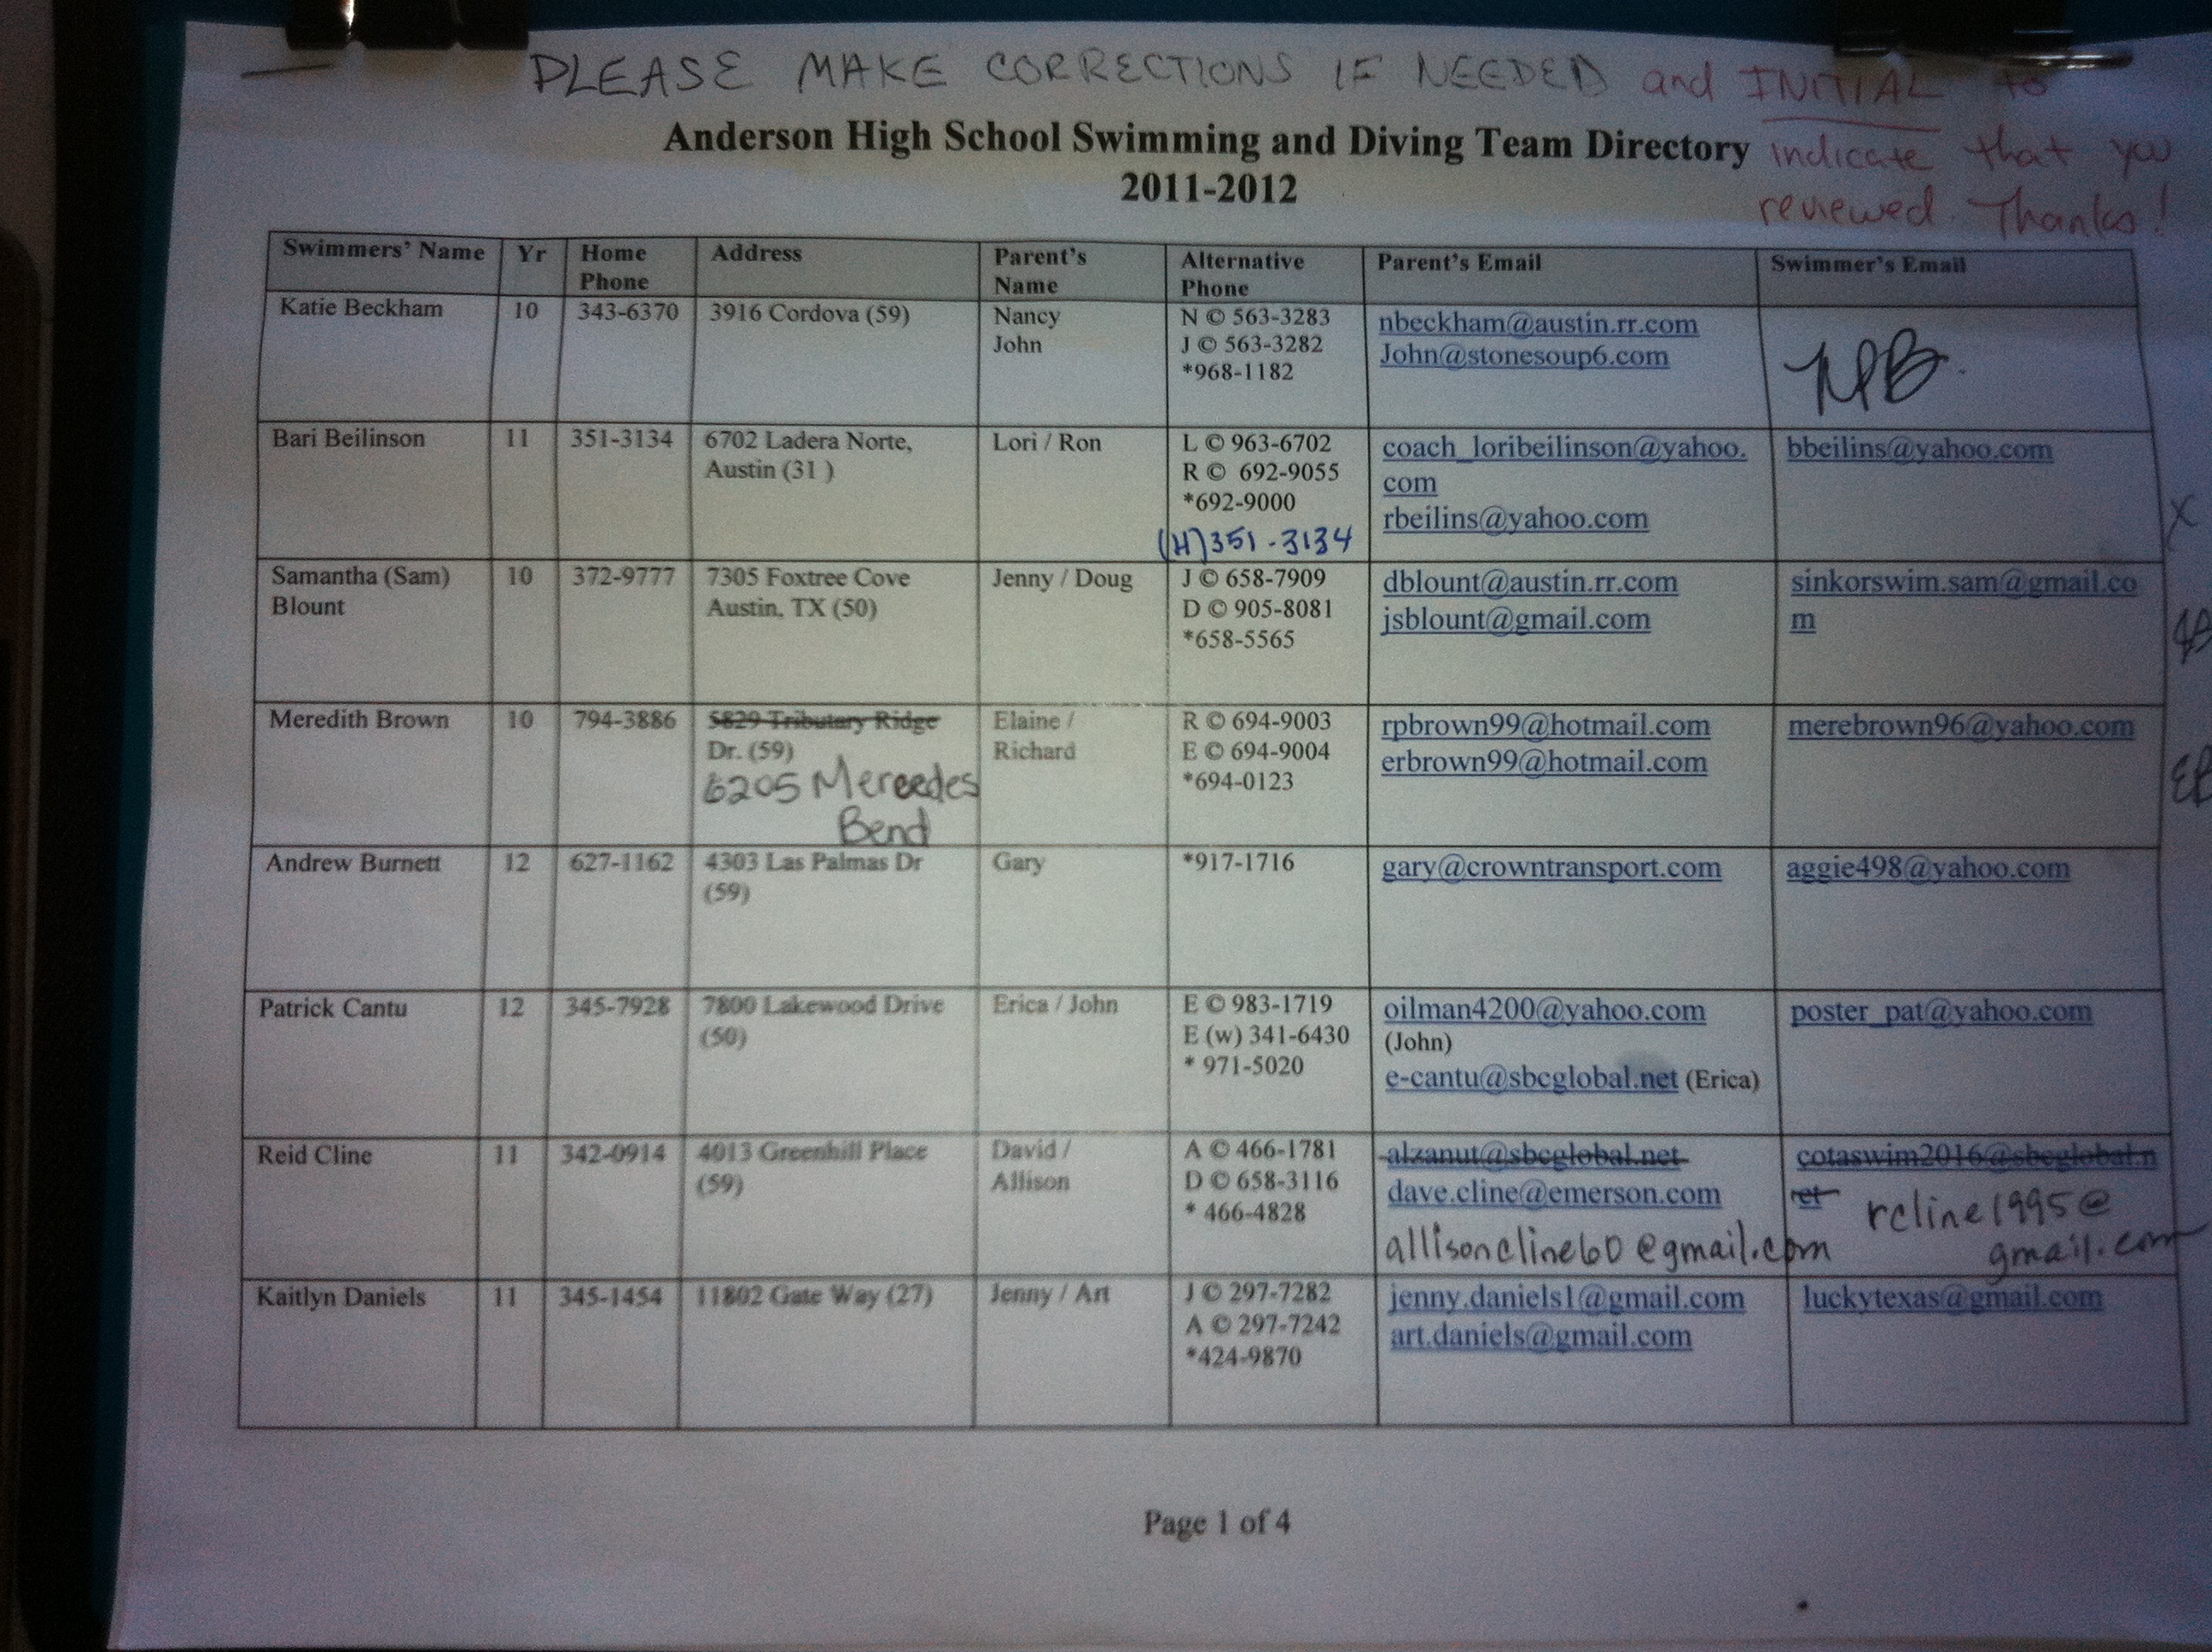 PLEASE MAKE CORRECTIONS IF NEEDED and INITIAL to
Anderson High School Swimming and Diving Team Directory indicate that you
2011-2012 reviewed. Thanks!
Swimmers' Name Yr Home Phone Address Parent's Name Alternative Phone Parent's Email Swimmer's Email
Katie Beckham 10 343-6370 3916 Cordova (59) Nancy N © 563-3283 nbeckham@austin.rr.com
John J © 563-3282 John@stonesoup6.com
*968-1182
NB
Bari Beilinson 11 351-3134 6702 Ladera Norte, Lori / Ron L © 963-6702 coach_loribeilinson@yahoo. bbeilins@yahoo.com
Austin (31 ) R © 692-9055 com
*692-9000 rbeilins@yahoo.com X
(H) 351-3134
Samantha (Sam) 10 372-9777 7305 Foxtree Cove Jenny / Doug J © 658-7909 dblount@austin.rr.com sinkorswim.sam@gmail.co
Blount Austin, TX (50) D © 905-8081 jsblount@gmail.com m
*658-5565
Meredith Brown 10 794-3886 5829 Tributary Ridge Elaine / R © 694-9003 rpbrown99@hotmail.com merebrown96@yahoo.com
Dr. (59) Richard E © 694-9004 erbrown99@hotmail.com
6205 Mercedes *694-0123
Bend
Andrew Burnett 12 627-1162 4303 Las Palmas Dr Gary *917-1716 gary@crowntransport.com aggie498@yahoo.com
(59)
Patrick Cantu 12 345-7928 7800 Lakewood Drive Erica / John E © 983-1719 oilman4200@yahoo.com poster_pat@yahoo.com
(50) E (w) 341-6430 (John)
* 971-5020 e-cantu@sbcglobal.net (Erica)
Reid Cline 11 342-0914 4013 Greenhill Place David / A © 466-1781 alzanut@sbcglobal.net cotaswim2016@sbcglobal.n
(59) Allison D © 658-3116 dave.cline@emerson.com et rcline1995@
* 466-4828 allisoncline60@gmail.com gmail.com
Kaitlyn Daniels 11 345-1454 11802 Gate Way (27) Jenny / Art J © 297-7282 jenny.daniels1@gmail.com luckytexas@gmail.com
A © 297-7242 art.daniels@gmail.com
*424-9870
Page 1 of 4